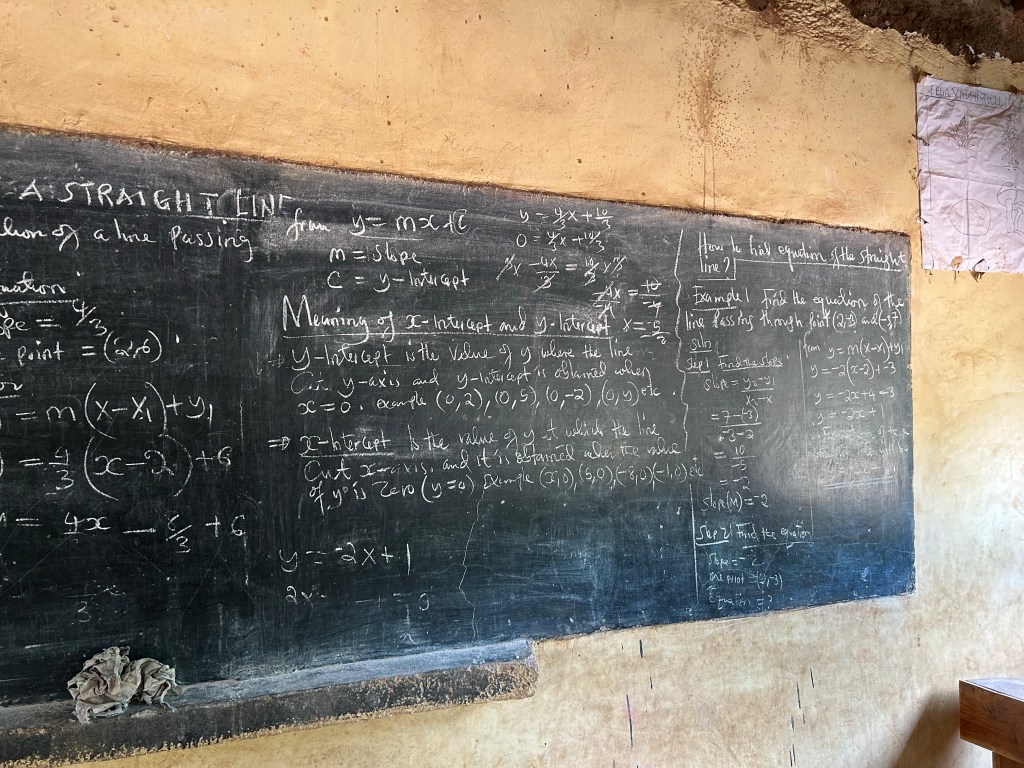 A STRAIGHT LINE
of a line passing
uation
pe = 4/3
point = (2,6)
= m(x-x1)+y1
= 4/3 (x-2)+6
= 4x - 8/3 + 6
from y = mx+C
m = slope
C = y-Intercept
y = 4/3x + 10/3
0 = 4/3x + 10/3
Meaning of x-Intercept and y-Intercept
x = -5/2
⇒ y-Intercept is the value of y where the line
Cut y-axis and y-Intercept is obtained when
x=0. example (0,2), (0,5), (0,-2), (0,y) etc.
⇒ x-Intercept Is the value of y at which the line
Cut x-axis, and it is obtained when the value
of y is Zero (y=0) Example (x,0), (5,0), (-8,0), (-1,0) etc
y = -2x+1
2x
How to find equation of the straight
line?
Example 1 Find the equation of the
line passing through point (2,-3) and (-3,7)
soln
Step 1 Find the slope
slope = y2-y1
x2-x1
= 7-(-3)
-3-2
= 10
-5
= -2
slope (M) = -2
Step 2 Find the equation
slope = -2
one point = (2,-3)
Equation = ?
from y = m(x-x1)+y1
y = -2(x-2)+-3
y = -2x+4-3
y = -2x+1